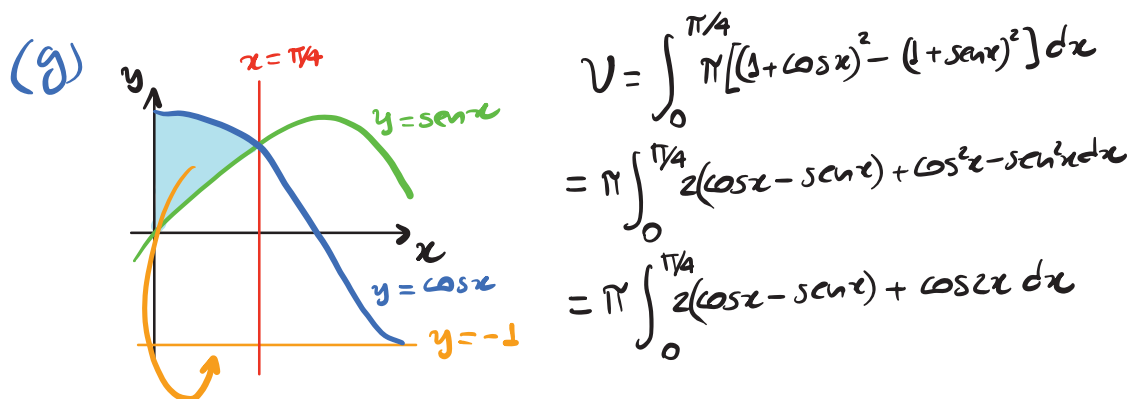 (g)
x = π/4
y
y = senx
x
y = cosx
y = -1
V = ∫₀^{π/4} π[(1+cosx)² - (1+senx)²] dx
= π ∫₀^{π/4} 2(cosx - senx) + cos²x - sen²x dx
= π ∫₀^{π/4} 2(cosx - senx) + cos2x dx